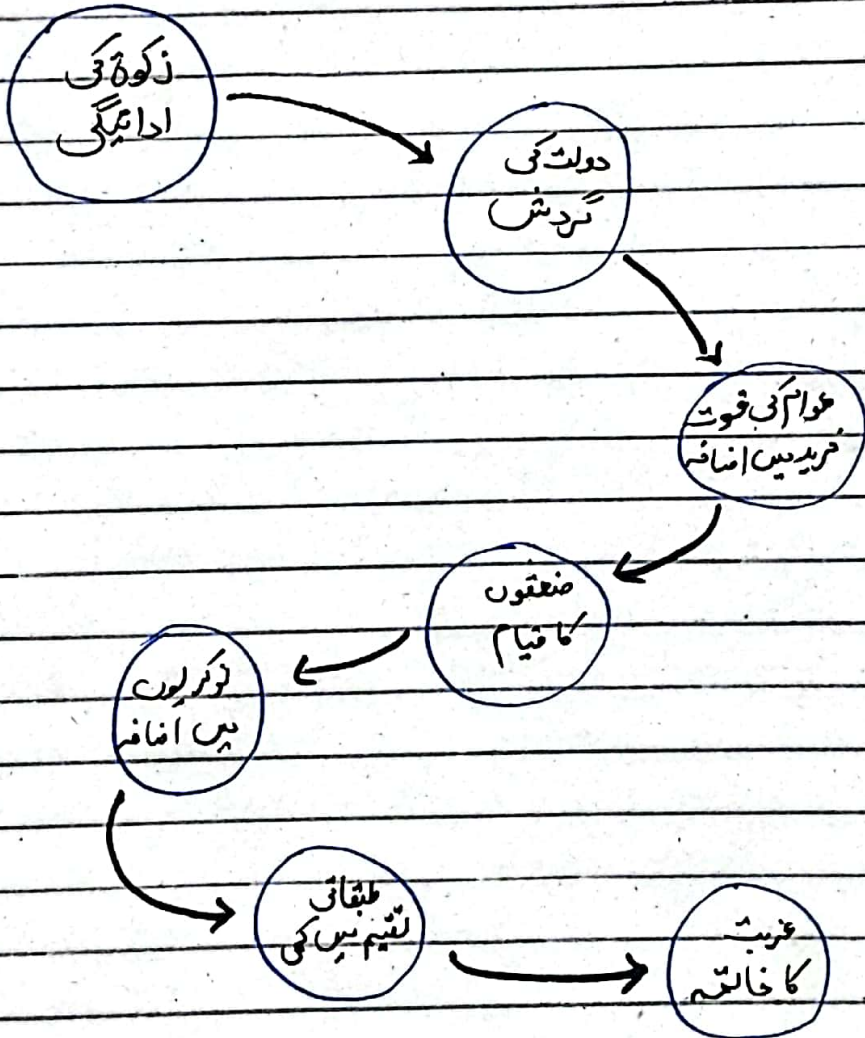 زکوۃ کی
ادائیگی
دولت کی
گردش
عوام کی قوت
خرید میں اضافہ
صنعتوں
کا قیام
نوکریوں
میں اضافہ
طبقاتی
تقسیم میں کمی
غربت
کا خاتمہ